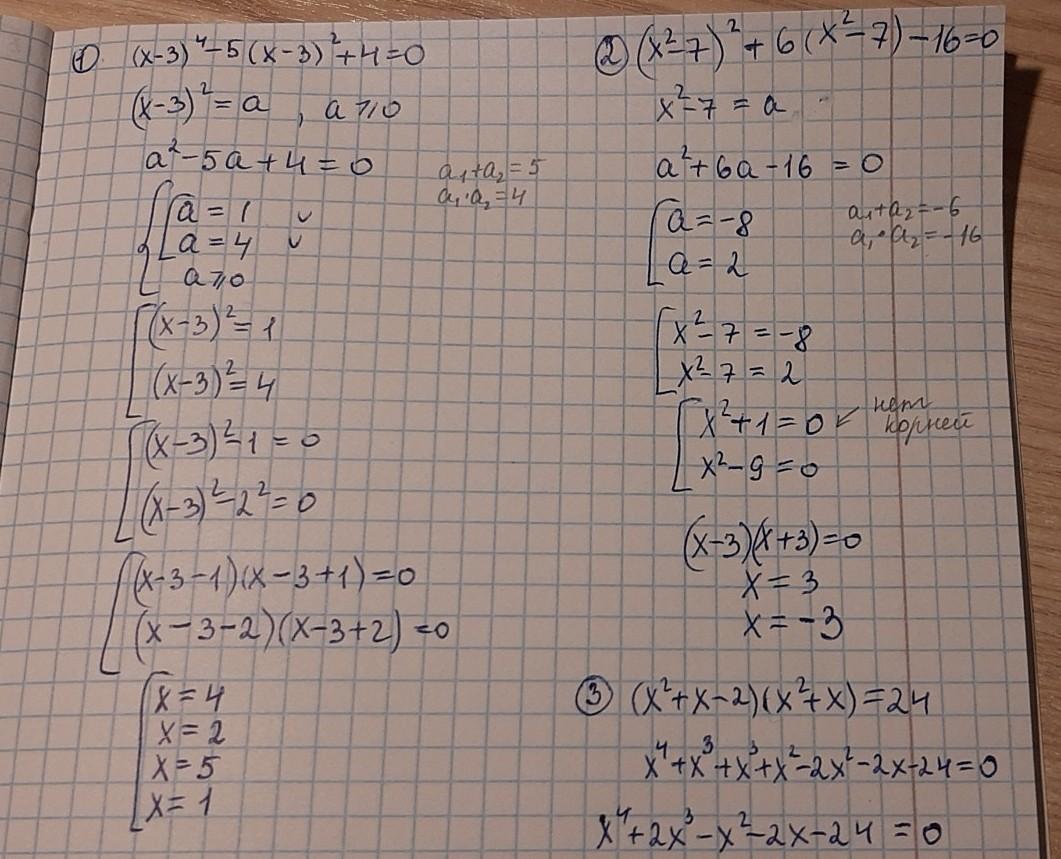 ① (x-3)⁴-5(x-3)²+4=0
(x-3)²=a , a⩾0
a²-5a+4=0
a₁+a₂=5
a₁·a₂=4
a=1 ✓
a=4 ✓
a⩾0
(x-3)²=1
(x-3)²=4
(x-3)²-1=0
(x-3)²-2²=0
(x-3-1)(x-3+1)=0
(x-3-2)(x-3+2)=0
x=4
x=2
x=5
x=1
② (x²-7)²+6(x²-7)-16=0
x²-7=a
a²+6a-16=0
a=-8
a=2
a₁+a₂=-6
a₁·a₂=-16
x²-7=-8
x²-7=2
x²+1=0 ↙ нет
корней
x²-9=0
(x-3)(x+3)=0
x=3
x=-3
③ (x²+x-2)(x²+x)=24
x⁴+x³+x³+x²-2x²-2x-24=0
x⁴+2x³-x²-2x-24=0